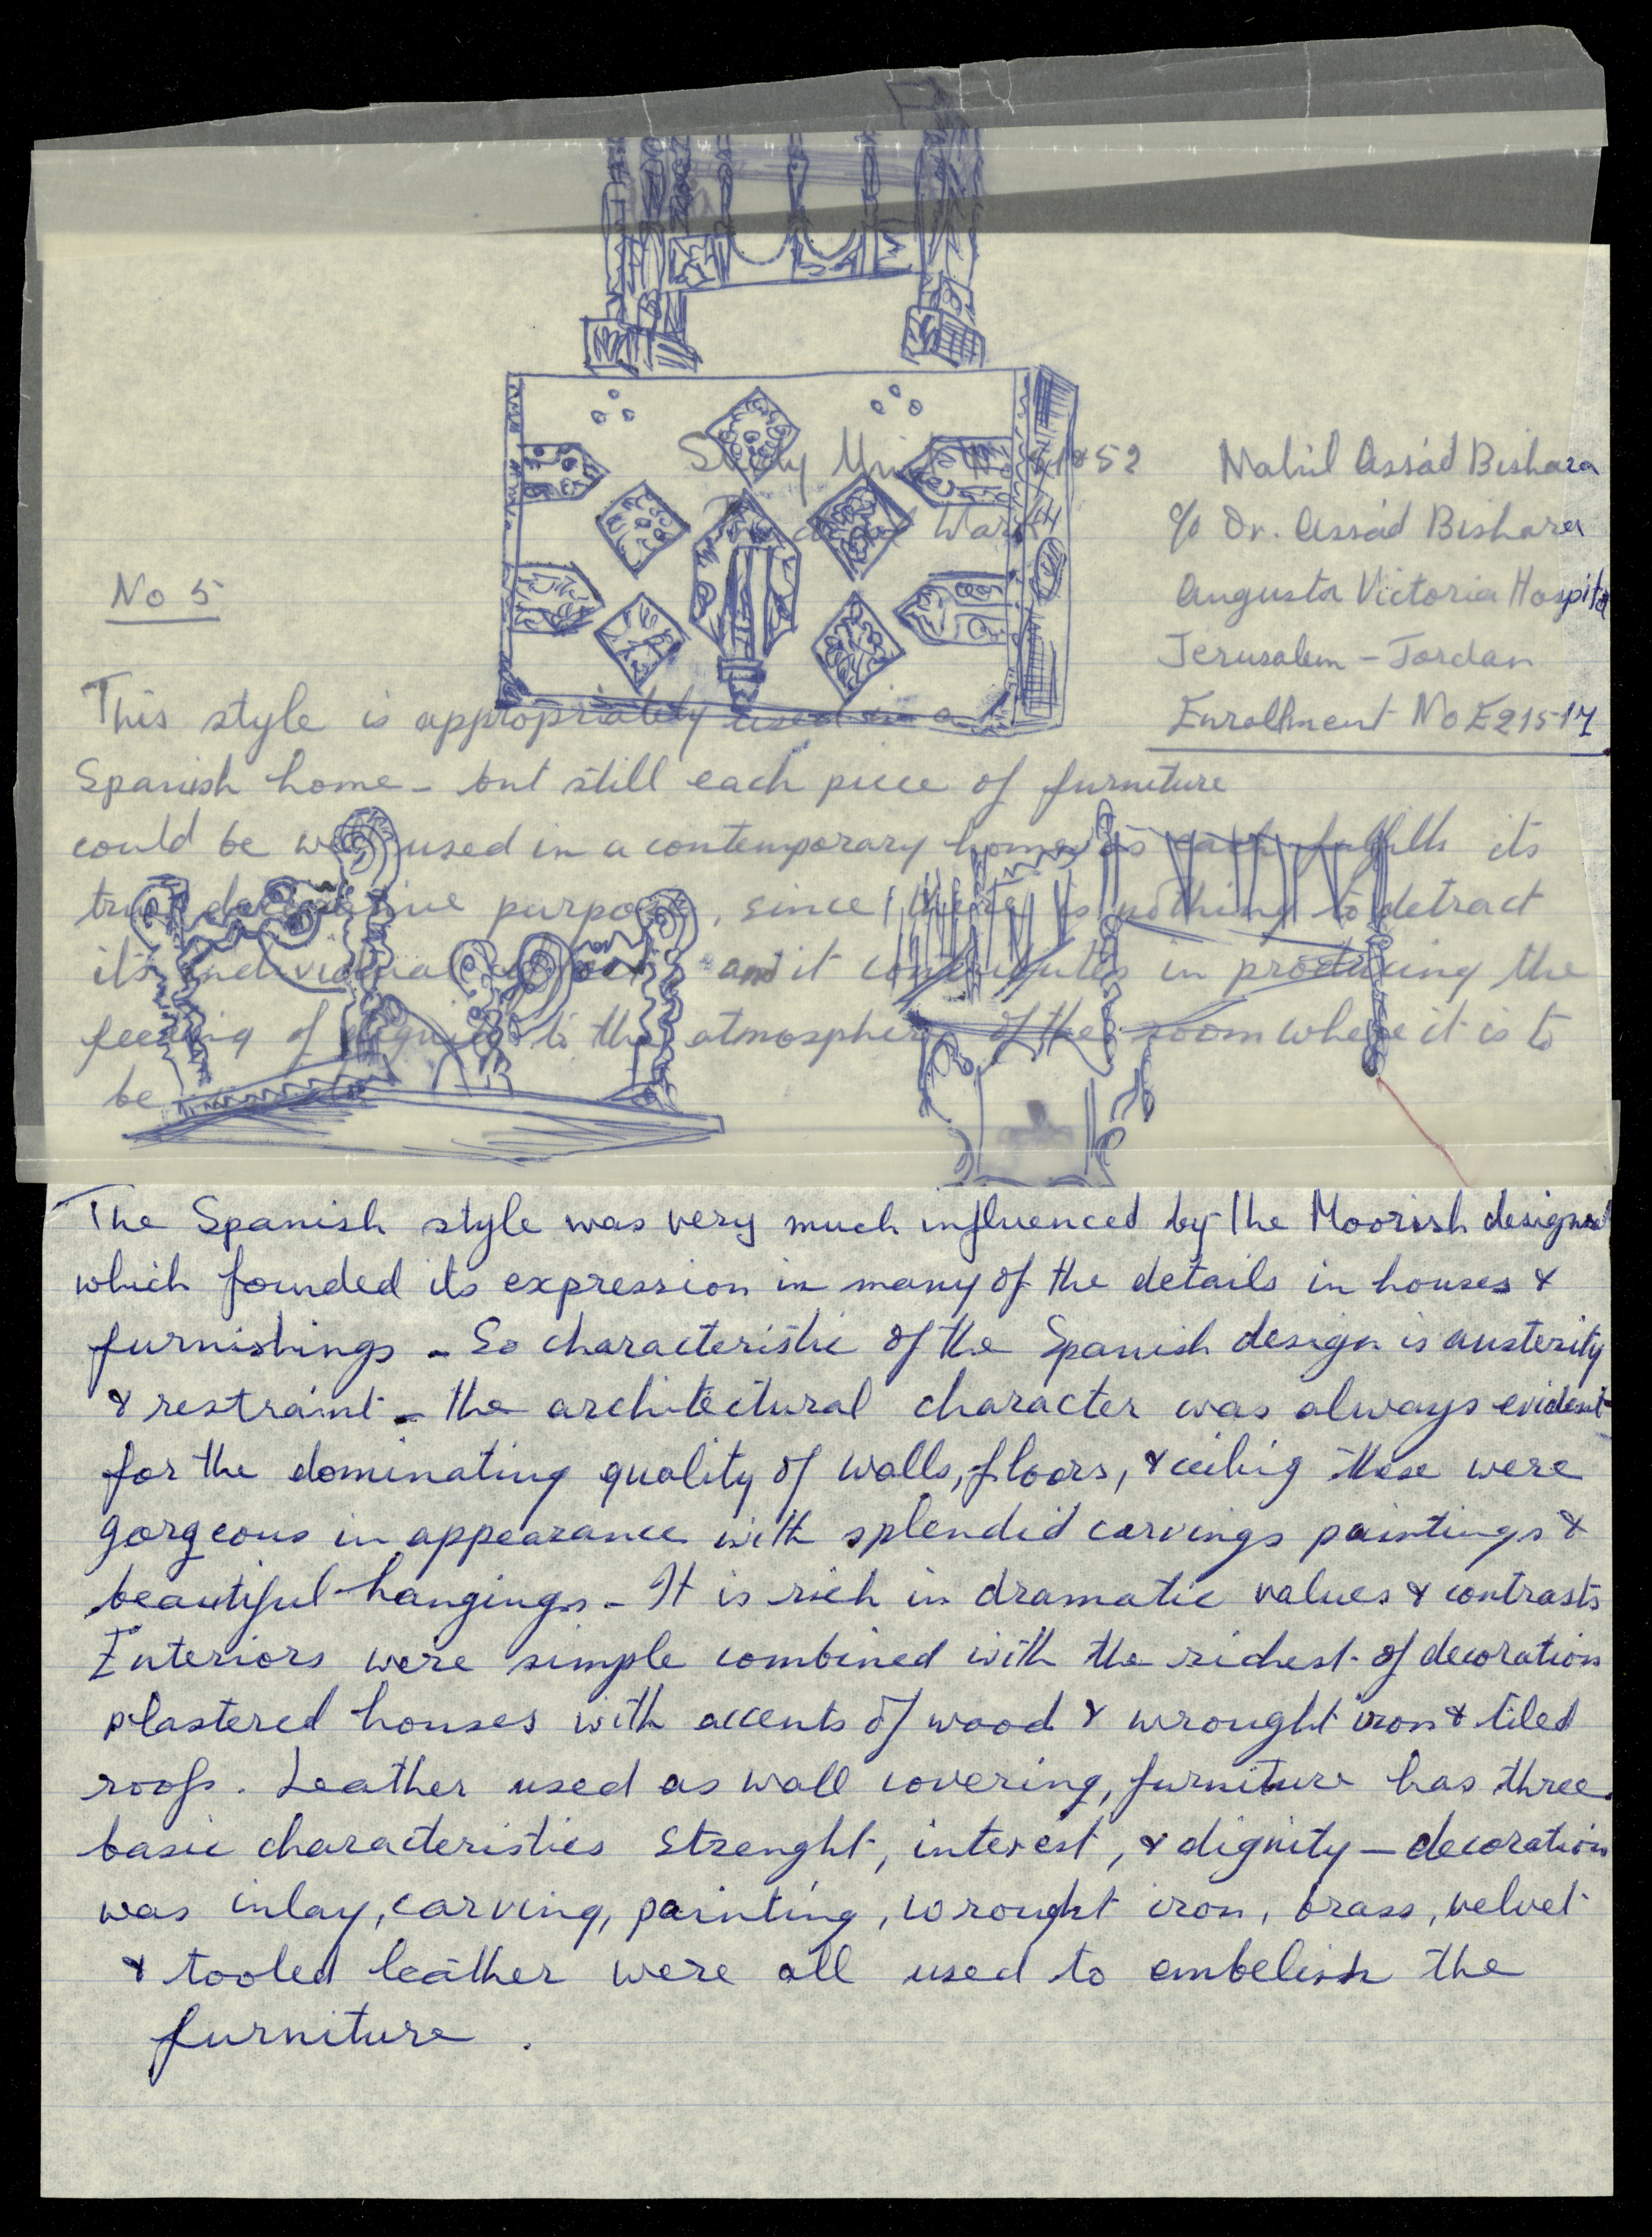 Study Unit
52
Nahil Assad Bishara
c/o Dr. Assad Bishara
Augusta Victoria Hospital
Jerusalem - Jordan
Enrollment No E21517
No 5
This style is appropriately used in a
Spanish home - but still each piece of furniture
could be well used in a contemporary home as each fulfills its
true decorative purpose, since there is nothing to detract
its individual and it contributes in producing the
feeling of dignity to the atmosphere of the room where it is to
be
The Spanish style was very much influenced by the Moorish designs
which founded its expression in many of the details in houses &
furnishings - So characteristic of the Spanish design is austerity
& restraint - the architectural character was always evident
for the dominating quality of walls, floors, & ceiling these were
gorgeous in appearance with splendid carvings paintings &
beautiful hangings - It is rich in dramatic values & contrasts
Interiors were simple combined with the richest of decoration
plastered houses with accents of wood & wrought iron & tiled
roofs. Leather used as wall covering, furniture has three
basic characteristics Strenght, interest, & dignity - decoration
was inlay, carving, painting, wrought iron, brass, velvet
& tooled leather were all used to embelish the
furniture.